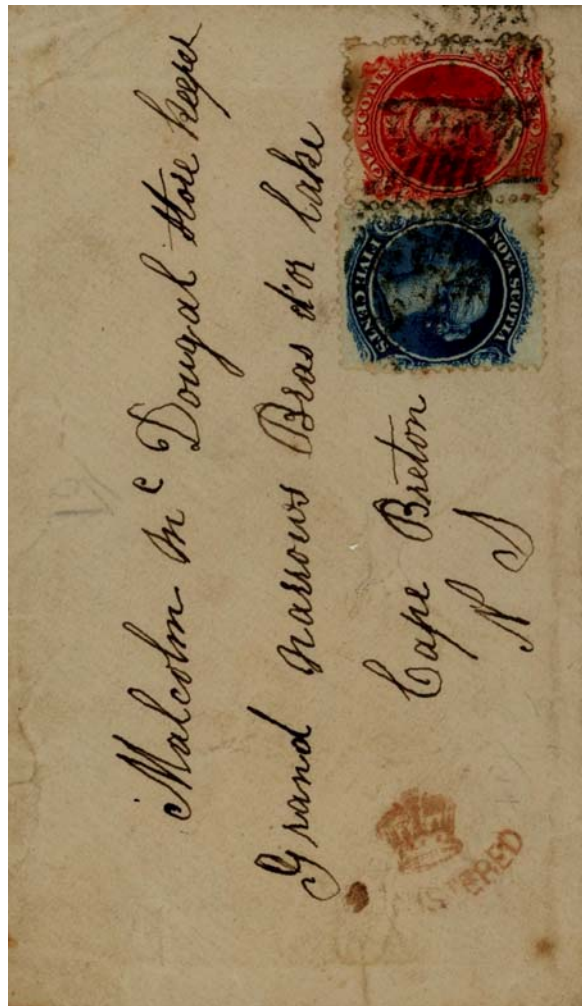 Malcolm Mc Dougal Store keeper
Grand narrows Bras d'or Lake
Cape Breton
N S
NOVA SCOTIA
NOVA SCOTIA
FIVE CENTS